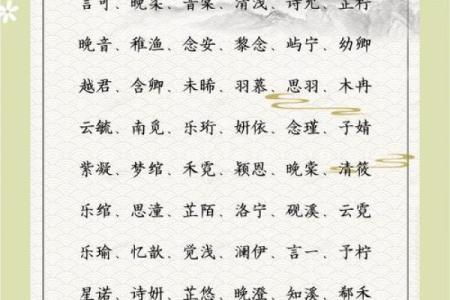 言可、晚柔、音棠、清浅、诗允、芷柠
晚音、稚渔、念安、黎念、屿宁、幼卿
越君、含卿、未晞、羽慕、思羽、木冉
云毓、南觅、乐珩、妍依、念瑾、子婧
紫凝、梦绾、禾霓、颖恩、晚棠、清筱
乐绾、思潼、芷陌、洛宁、砚溪、云霓
乐瑜、忆歆、觉浅、澜伊、言一、予柠
星诺、诗妍、芷悠、晚澄、知溪、郗禾